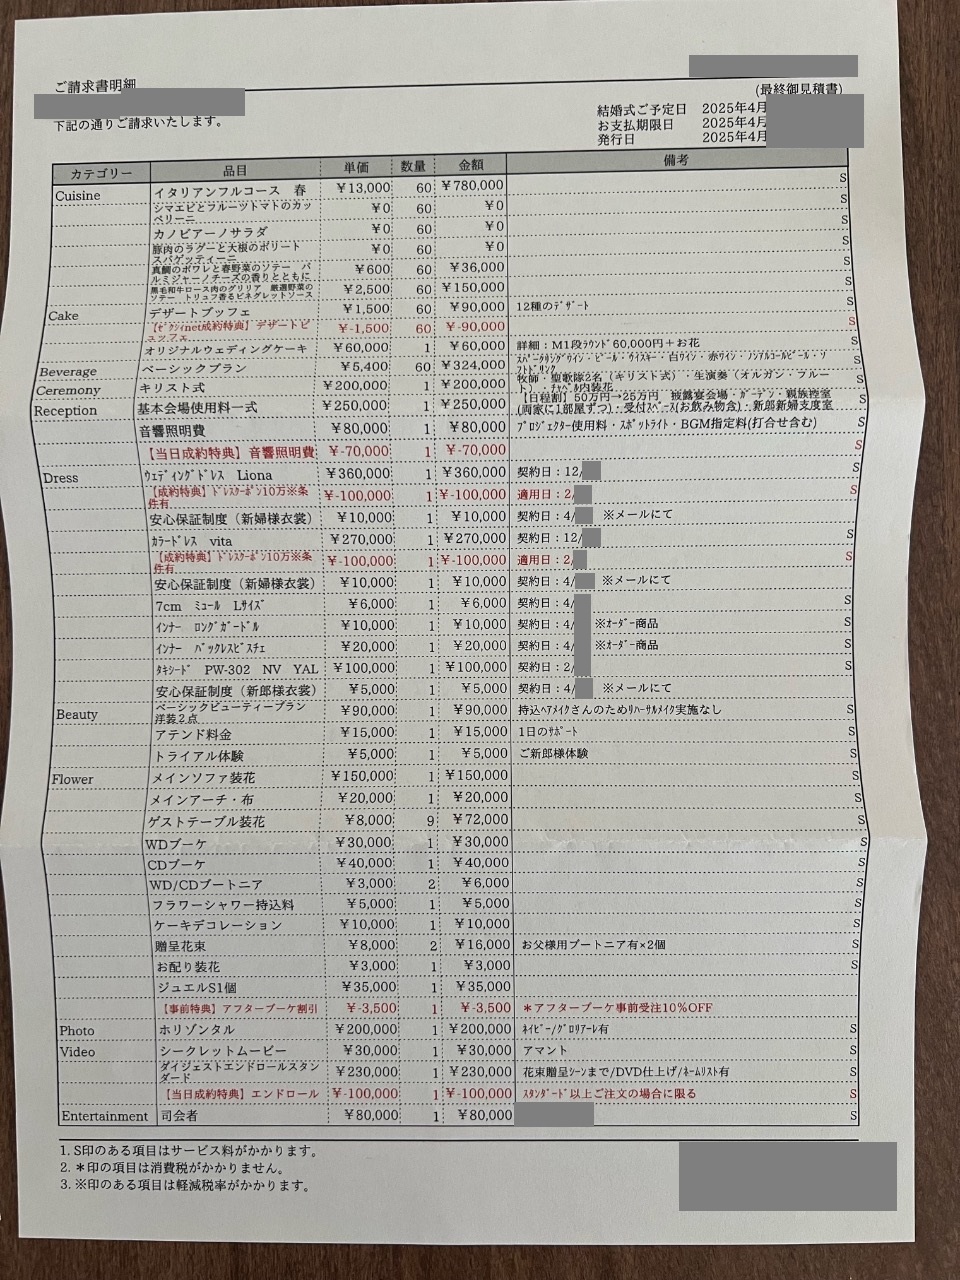 ご請求書明細
(最終御見積書)
下記の通りご請求いたします。
結婚式ご予定日 2025年4月
お支払期限日 2025年4月
発行日 2025年4月
カテゴリー 品目 単価 数量 金額 備考
Cuisine イタリアンフルコース 春 ¥13,000 60 ¥780,000 S
シマエビとフルーツトマトのカッペリーニ ¥0 60 ¥0 S
カノビアーノサラダ ¥0 60 ¥0 S
豚肉のラグーと大根のポリート スパゲッティーニ ¥0 60 ¥0 S
真鯛のポワレと春野菜のソテー パルミジャーノチーズの香りとともに ¥600 60 ¥36,000 S
黒毛和牛ロース肉のグリリア 厳選野菜のソテー トリュフ香るビネグレットソース ¥2,500 60 ¥150,000 S
Cake デザートブッフェ ¥1,500 60 ¥90,000 12種のデザート S
【ゼクシィnet成約特典】デザートビュッフェ ¥-1,500 60 ¥-90,000 S
オリジナルウェディングケーキ ¥60,000 1 ¥60,000 詳細：M1段ラウンド60,000円＋お花 S
Beverage ベーシックプラン ¥5,400 60 ¥324,000 スパークリングワイン・ビール・ウイスキー・白ワイン・赤ワイン・ノンアルコールビール・ソフトドリンク S
Ceremony キリスト式 ¥200,000 1 ¥200,000 牧師・聖歌隊2名（キリスト式）・生演奏（オルガン・フルート）・チャペル内装花 S
Reception 基本会場使用料一式 ¥250,000 1 ¥250,000 【日程割】50万円→25万円 披露宴会場・ガーデン・親族控室(両家に1部屋ずつ)・受付スペース(お飲み物含)・新郎新婦支度室 S
音響照明費 ¥80,000 1 ¥80,000 プロジェクター使用料・スポットライト・BGM指定料(打合せ含む) S
【当日成約特典】音響照明費 ¥-70,000 1 ¥-70,000 S
Dress ウェディングドレス Liona ¥360,000 1 ¥360,000 契約日：12/ S
【成約特典】ドレスクーポン10万※条件有 ¥-100,000 1 ¥-100,000 適用日：2/ S
安心保証制度（新婦様衣裳） ¥10,000 1 ¥10,000 契約日：4/ ※メールにて
カラードレス vita ¥270,000 1 ¥270,000 契約日：12/ S
【成約特典】ドレスクーポン10万※条件有 ¥-100,000 1 ¥-100,000 適用日：2/ S
安心保証制度（新婦様衣裳） ¥10,000 1 ¥10,000 契約日：4/ ※メールにて
7cm ミュール Lサイズ ¥6,000 1 ¥6,000 契約日：4/ S
インナー ロングガードル ¥10,000 1 ¥10,000 契約日：4/ ※オーダー商品 S
インナー バックレスビスチェ ¥20,000 1 ¥20,000 契約日：4/ ※オーダー商品 S
タキシード PW-302 NV YAL ¥100,000 1 ¥100,000 契約日：2/ S
安心保証制度（新郎様衣裳） ¥5,000 1 ¥5,000 契約日：4/ ※メールにて
Beauty ベーシックビューティープラン 洋装2点 ¥90,000 1 ¥90,000 持込ヘアメイクさんのためリハーサルメイク実施なし S
アテンド料金 ¥15,000 1 ¥15,000 1日のサポート S
トライアル体験 ¥5,000 1 ¥5,000 ご新郎様体験 S
Flower メインソファ装花 ¥150,000 1 ¥150,000 S
メインアーチ・布 ¥20,000 1 ¥20,000 S
ゲストテーブル装花 ¥8,000 9 ¥72,000 S
WDブーケ ¥30,000 1 ¥30,000 S
CDブーケ ¥40,000 1 ¥40,000 S
WD/CDブートニア ¥3,000 2 ¥6,000 S
フラワーシャワー持込料 ¥5,000 1 ¥5,000 S
ケーキデコレーション ¥10,000 1 ¥10,000 S
贈呈花束 ¥8,000 2 ¥16,000 お父様用ブートニア有×2個 S
お配り装花 ¥3,000 1 ¥3,000 S
ジュエルS1個 ¥35,000 1 ¥35,000
【事前特典】アフターブーケ割引 ¥-3,500 1 ¥-3,500 ＊アフターブーケ事前受注10%OFF
Photo ホリゾンタル ¥200,000 1 ¥200,000 ネイビー/グロリアーレ有 S
Video シークレットムービー ¥30,000 1 ¥30,000 アマント S
ダイジェストエンドロールスタンダード ¥230,000 1 ¥230,000 花束贈呈シーンまで/DVD仕上げ/ネームリスト有 S
【当日成約特典】エンドロール ¥-100,000 1 ¥-100,000 スタンダード以上ご注文の場合に限る S
Entertainment 司会者 ¥80,000 1 ¥80,000 S
1. S印のある項目はサービス料がかかります。
2. ＊印の項目は消費税がかかりません。
3. ※印のある項目は軽減税率がかかります。